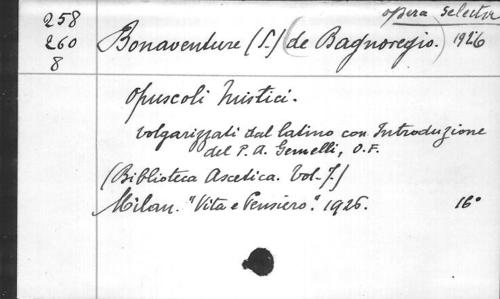 opera selecta
258
260
8
Bonaventure (S.) (de Bagnoregio.) 1926
Opuscoli Mistici.
volgarizzati dal latino con Introduzione
del P. A. Gemelli, O.F.
(Biblioteca Ascetica. Vol. 7.)
Milan. "Vita e Pensiero". 1926. 16°